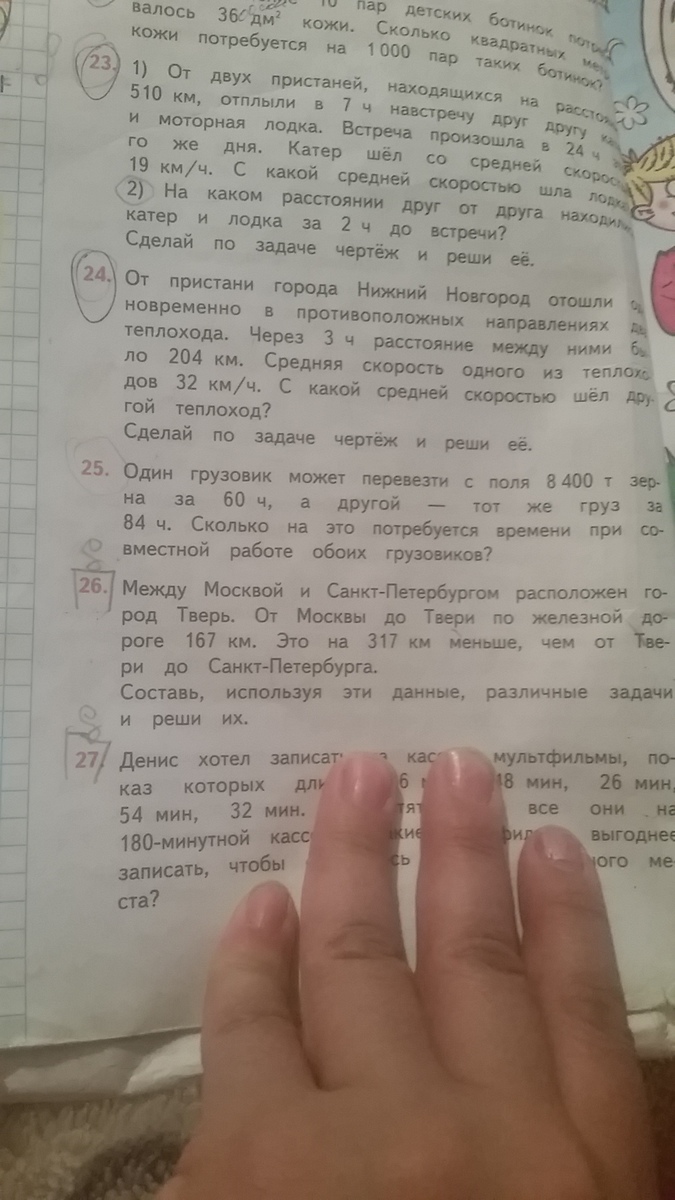 10 пар детских ботинок
валось 360 дм² кожи. Сколько квадратных
кожи потребуется на 1 000 пар таких ботинок?
23. 1) От двух пристаней, находящихся на
510 км, отплыли в 7 ч навстречу друг другу
и моторная лодка. Встреча произошла в 24 ч
го же дня. Катер шёл со средней
19 км/ч. С какой средней скоростью шла лодка
2) На каком расстоянии друг от друга
катер и лодка за 2 ч до встречи?
Сделай по задаче чертёж и реши её.
24. От пристани города Нижний Новгород отошли
новременно в противоположных направлениях
теплохода. Через 3 ч расстояние между ними бы
ло 204 км. Средняя скорость одного из теплохо
дов 32 км/ч. С какой средней скоростью шёл дру-
гой теплоход?
Сделай по задаче чертёж и реши её.
25. Один грузовик может перевезти с поля 8 400 т зер-
на за 60 ч, а другой — тот же груз за
84 ч. Сколько на это потребуется времени при со-
вместной работе обоих грузовиков?
26. Между Москвой и Санкт-Петербургом расположен го-
род Тверь. От Москвы до Твери по железной до-
роге 167 км. Это на 317 км меньше, чем от Тве-
ри до Санкт-Петербурга.
Составь, используя эти данные, различные задачи
и реши их.
27. Денис хотел мультфильмы, по-
каз которых 26 мин,
54 мин, 32 мин. все они на
180-минутной выгоднее
записать, чтобы ме-
ста?